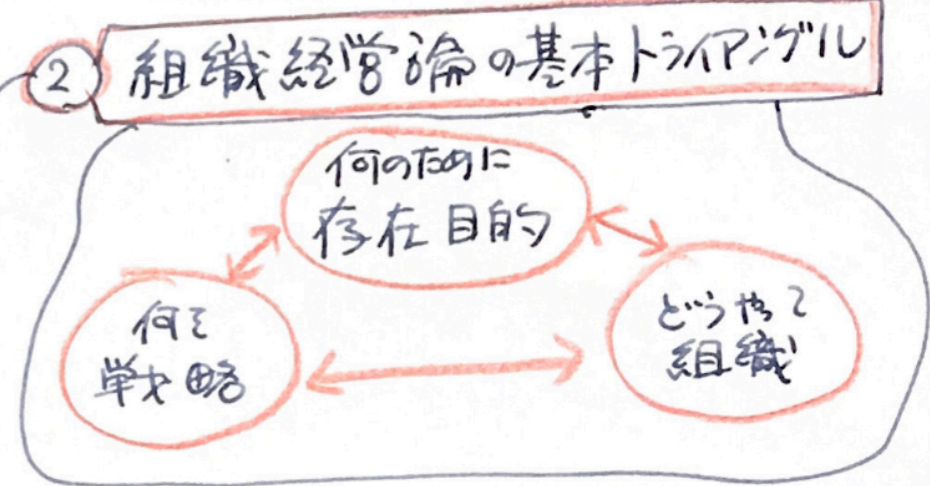 ② 組織経営論の基本トライアングル
何のために
存在目的
何を
戦略
どうやって
組織